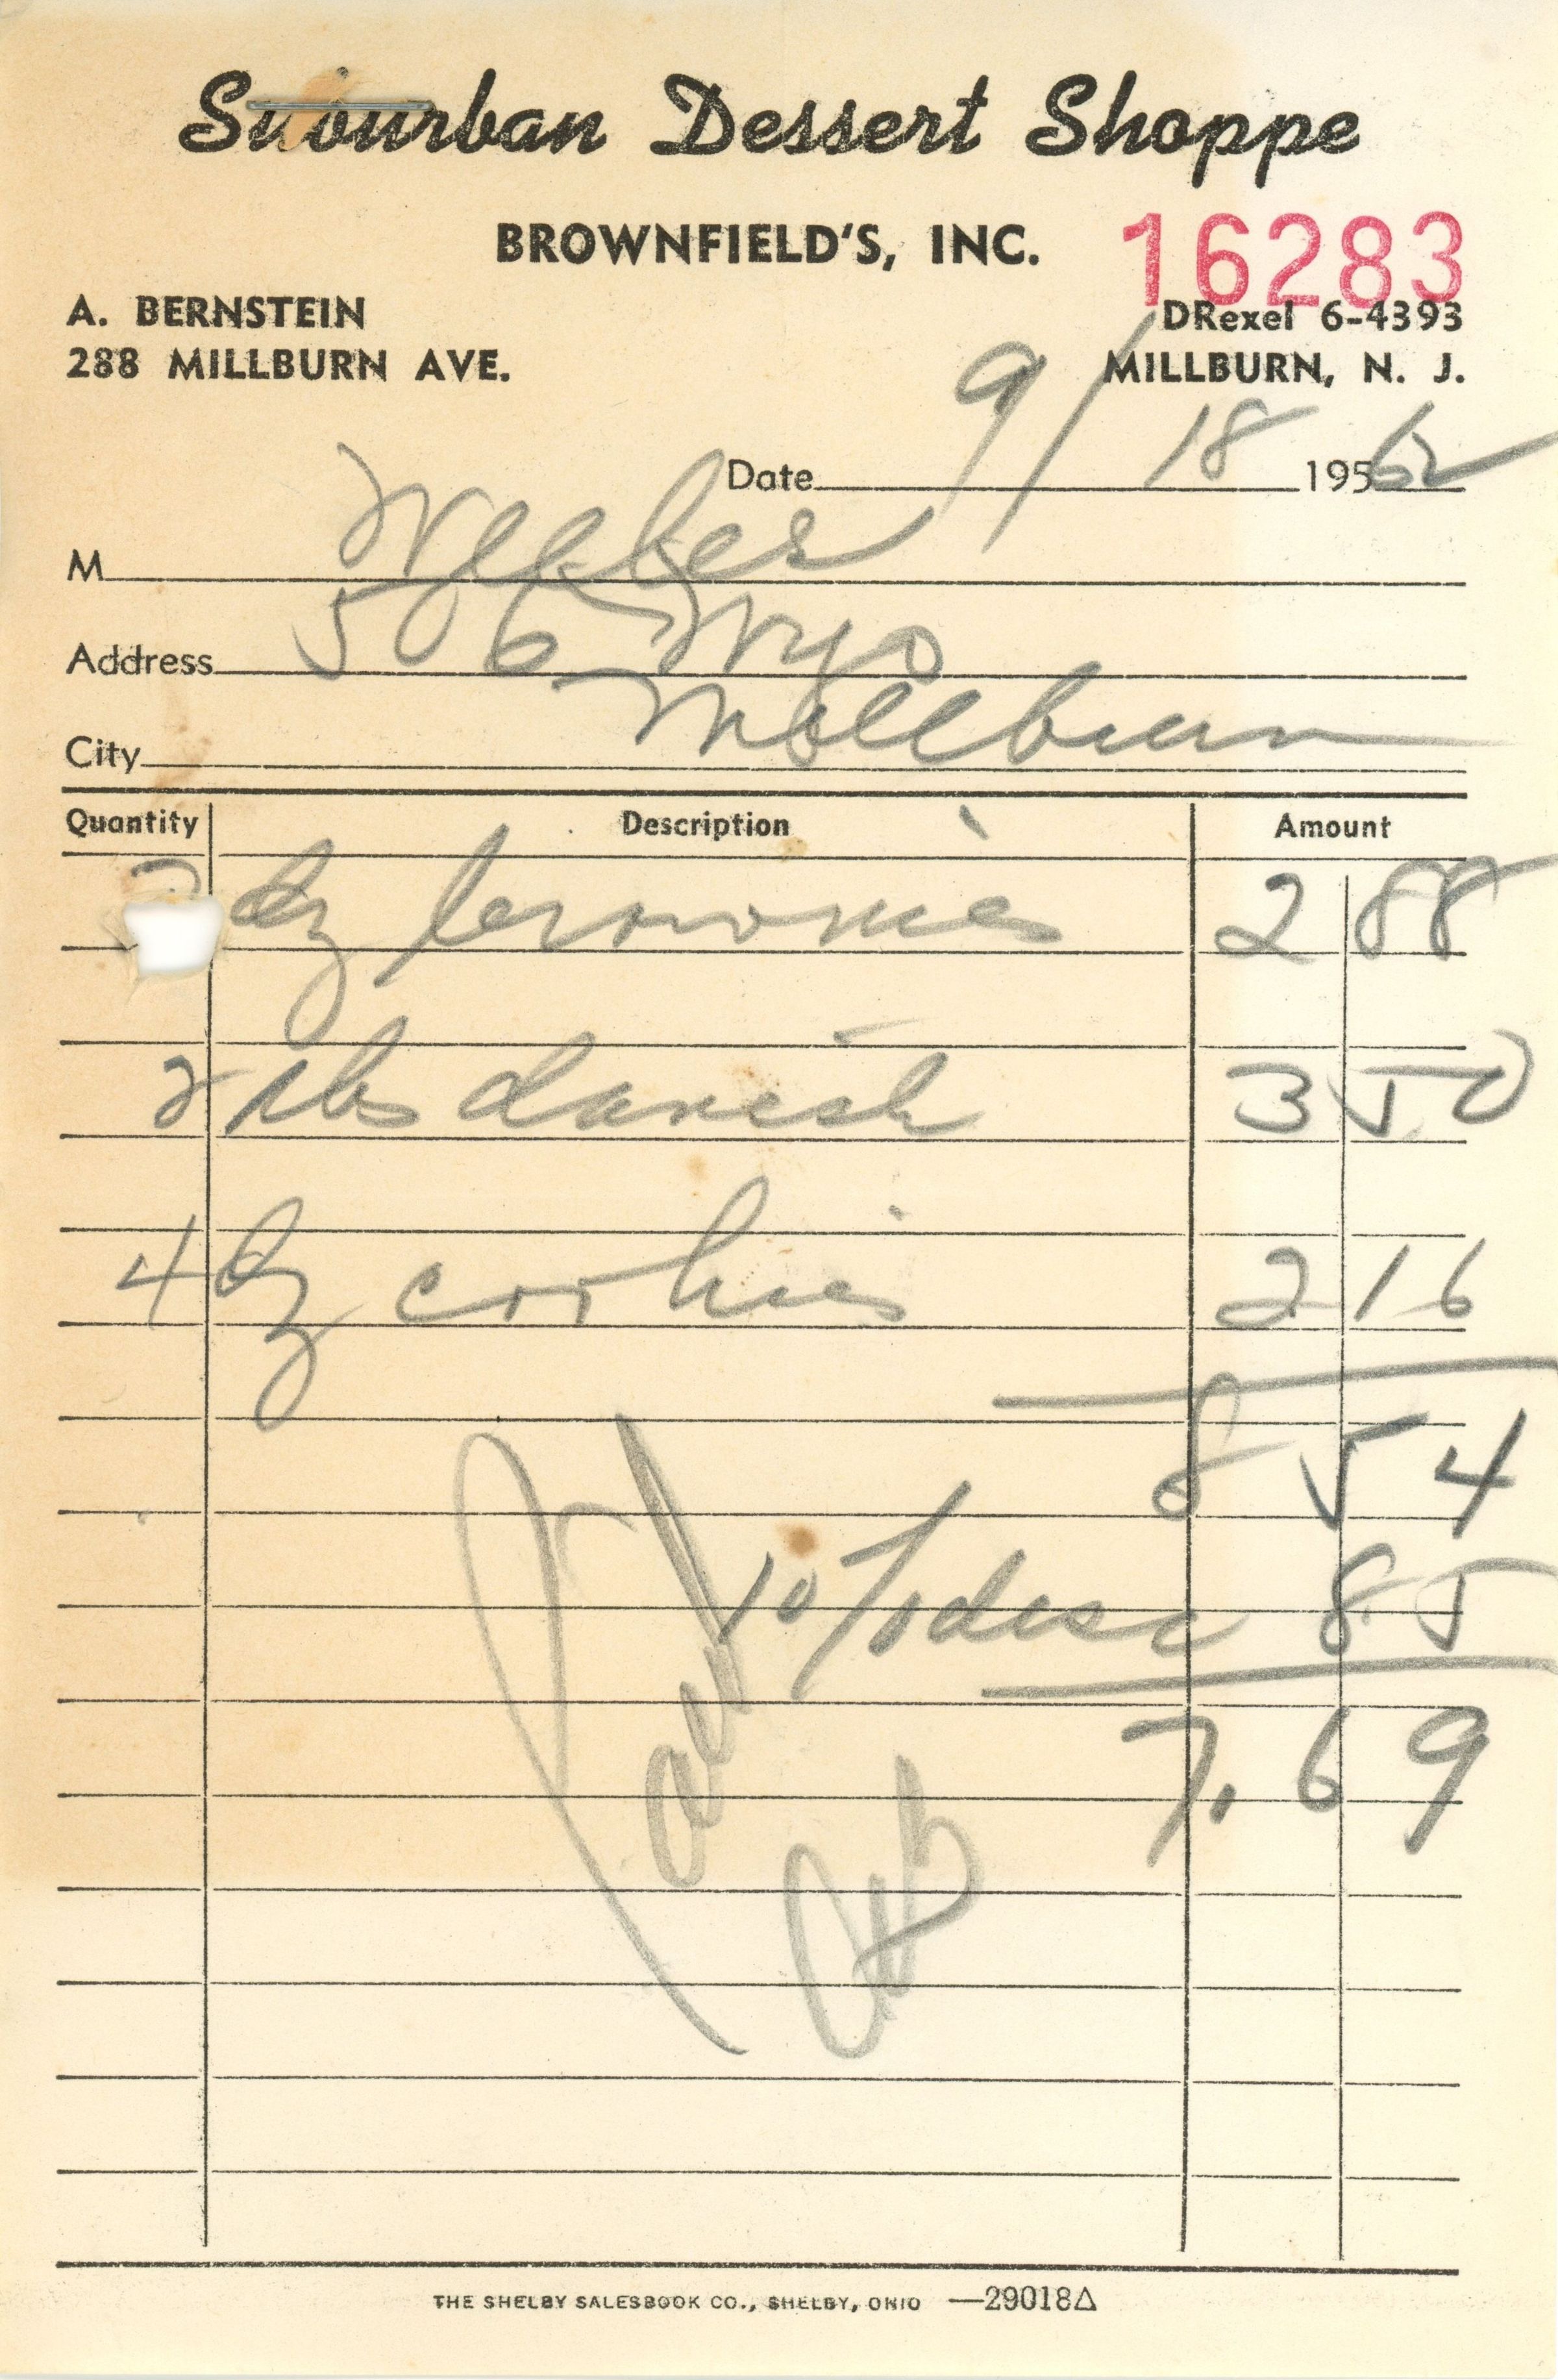 Suburban Dessert Shoppe
BROWNFIELD'S, INC.
16283
A. BERNSTEIN
DRexel 6-4393
288 MILLBURN AVE.
MILLBURN, N. J.
Date 9/18 195 62
M
Address 56 Wyo
City Millburn
Quantity Description Amount
2 dz brownies 2 88
2 lbs danish 3 50
4 dz cookies 2 16
8 54
10% disc 85
7.69
Paid
THE SHELBY SALESBOOK CO., SHELBY, OHIO —29018Δ